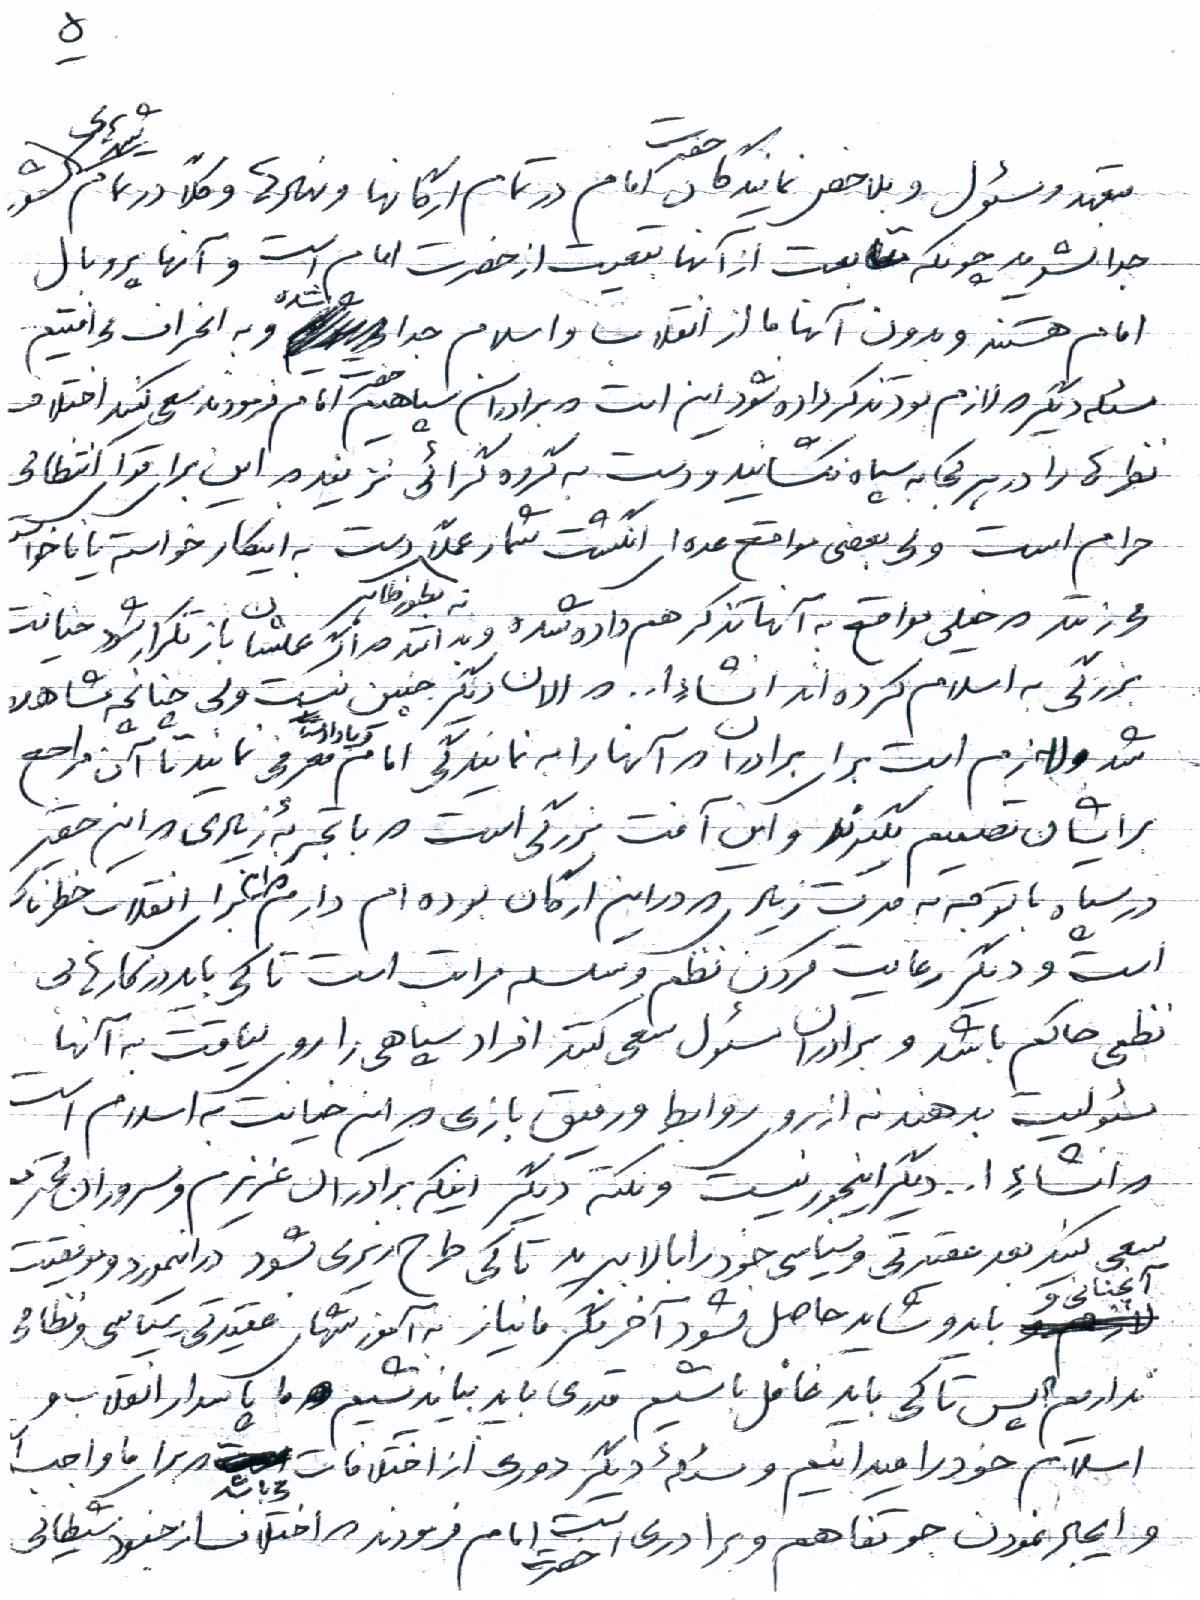 ۵
متعهد و مسئول و بالاخص نمایندگان حضرت امام در تمام ارگانها و نهادها و کلا در تمام کشور
جدا نشوید چونکه متابعت از آنها تبعیت از حضرت امام است و آنها پر و بال
امام هستند و بدون آنها ما از انقلاب و اسلام جدا شده و به انحراف می‌افتیم
مسئله دیگر که لازم بود تذکر داده شود این است که برادران سپاهیم حضرت امام فرمودند سعی کنید اختلاف
نظرها را در هر کجا به سپاه نکشانید و دست به گروه گرائی نزنید که این برای قوای انتظامی
حرام است ولی بعضی مواقع عده‌ای انگشت شمار عملاً دست به اینکار خواسته یا ناخواسته
می‌زنند که خیلی مواقع به آنها تذکر هم داده شده و بدانند که اگر عملشان باز تکرار شود خیانت
بزرگی به اسلام کرده‌اند انشاءا.. که الان دیگر چنین نیست ولی چنانچه مشاهده
شد لازم است برای برادران که آنها را به نمایندگی امام معرفی نمایند تا آن مراجع
برایشان تصمیم بگیرند و این آفت بزرگی است که با تجربهٔ زیادی که این حقیر
در سپاه با توجه به مدت زیادی که در این ارگان بوده‌ام دارم برای انقلاب خطرناک
است و دیگر رعایت کردن نظم و سلسله مراتب است تا کی باید در کارها بی
نظمی حاکم باشد و برادران مسئول سعی کنند افراد سپاهی را روی لیاقت به آنها
مسئولیت بدهند نه از روی روابط و رفیق بازی که این خیانت به اسلام است
که انشاءا.. دیگر اینجور نیست و نکته دیگر اینکه برادران عزیزم و سروران محترم
سعی کنند بعد عقیدتی و سیاسی خود را بالا ببرید تا کی طرح ریزی نشود در اینمورد و موفقیت
آنچنانی و باید و شاید حاصل نشود آخر مگر ما نیاز به آموزشهای عقیدتی سیاسی و نظامی
نداریم پس تا کی باید غافل باشیم قدری باید بیاندیشیم که ما پاسدار انقلاب و
اسلام خود را میدانیم و مسئلهٔ دیگر دوری از اختلافات می‌باشد که برای ما واجب
و ایجاد نمودن جو تفاهم و برادری است حضرت امام فرمودند که اختلاف از جنود شیطانی